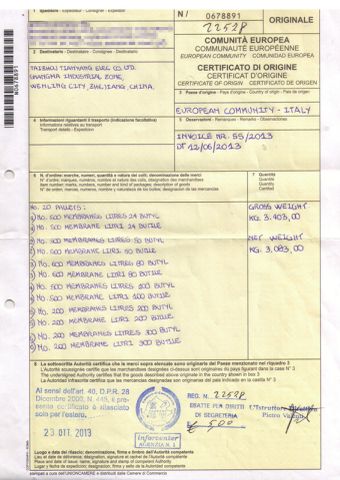 N / 0678891
ORIGINALE
22528
N0678891
COMUNITÀ EUROPEA
COMMUNAUTÉ EUROPÉENNE
EUROPEAN COMMUNITY - COMUNIDAD EUROPEA
2 Destinatario - Destinataire - Consignee - Destinatario
TAIZHOU TIANYANG ELEC CO. LTD.
SHANGMA INDUSTRIAL ZONE,
WENLING CITY, ZHEJIANG, CHINA.
CERTIFICATO DI ORIGINE
CERTIFICAT D'ORIGINE
CERTIFICATE OF ORIGIN - CERTIFICADO DE ORIGEN
3 Paese d'origine - Pays d'origine - Country of origin - País de origen
EUROPEAN COMMUNITY - ITALY
4 Informazioni riguardanti il trasporto (indicazione facoltativa)
Informations relatives au transport
Transport details - Expedición
5 Osservazioni - Remarques - Remarks - Observaciones
INVOICE NR. 55/2013
OF 12/06/2013
6 N. d'ordine; marche, numeri, quantità e natura dei colli; denominazione delle merci
N° d'ordre; marques, numéros, nombre et nature des colis; désignation des marchandises
Item number; marks, numbers, number and kind of packages; description of goods
7 Quantità
Quantité
Quantity
Cantidad
NO. 20 PALLETS:
GROSS WEIGHT
KG. 3.403,00
NO. 500 MEMBRANES LITRES 24 BUTYL
NO. 500 MEMBRANE LITRI 24 BUTILE
NO. 500 MEMBRANES LITRES 50 BUTYL
NET WEIGHT
NO. 500 MEMBRANE LITRI 50 BUTILE
KG. 3.083,00
NO. 600 MEMBRANES LITRES 80 BUTYL
NO. 600 MEMBRANE LITRI 80 BUTILE
NO. 500 MEMBRANES LITRES 100 BUTYL
NO. 500 MEMBRANE LITRI 100 BUTILE
NO. 200 MEMBRANES LITRES 200 BUTYL
NO. 200 MEMBRANE LITRI 200 BUTILE
NO. 200 MEMBRANES LITRES 300 BUTYL
NO. 200 MEMBRANE LITRI 300 BUTILE
8 La sottoscritta Autorità certifica che le merci sopra elencate sono originarie del Paese menzionato nel riquadro 3
L'Autorité soussignée certifie que les marchandises désignées ci-dessus sont originaires du pays figurant dans la case N° 3
The undersigned Authority certifies that the goods described above originate in the country shown in box 3
La Autoridad infrascrita certifica que las mercancías designadas son originarias del país indicado en la casilla N° 3
Ai sensi dell'art. 40, D.P.R. 28
Dicembre 2000, N. 445, il presente certificato è rilasciato
solo per l'estero.
23 OTT. 2013
infocenter
AGENZIA N. 1
REG. N. 22528
ESATTE PER DIRITTI
DI SEGRETERIA
€ 5,00
L'Istruttore
Pietro
Luogo e data del rilascio; denominazione, firma e timbro dell'Autorità competente
Lieu et date de délivrance; désignation, signature et cachet de l'autorité compétente
Place and date of issue; name, signature and stamp of competent Authority
Lugar y fecha de expedición; designación, firma y sello de la Autoridad competente
stampati a cura dell'UNIONCAMERE e distribuiti dalle Camere di Commercio